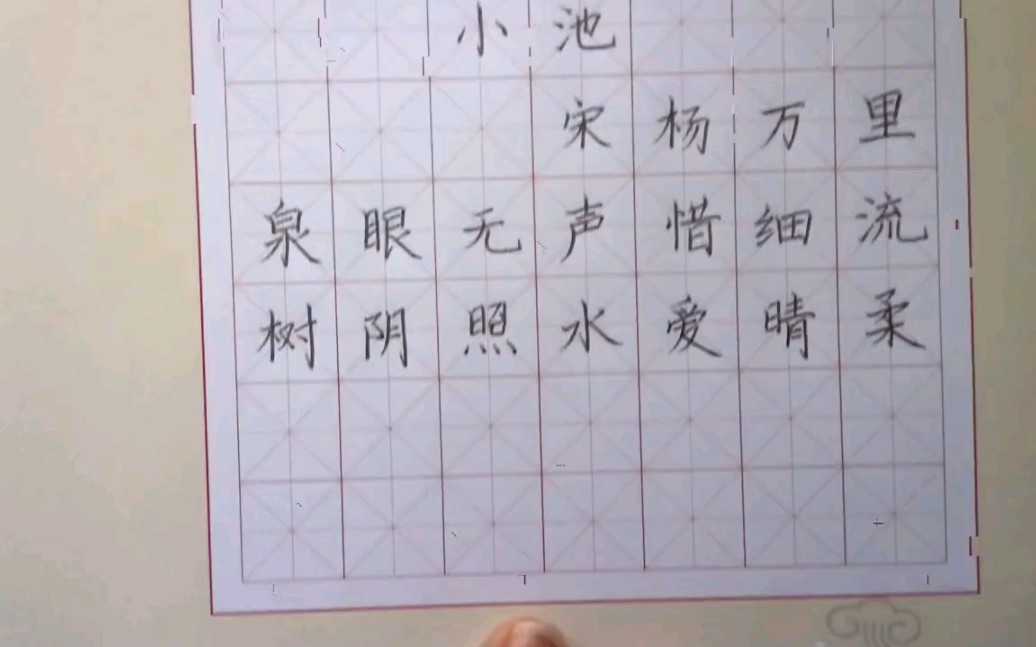 小池
宋杨万里
泉眼无声惜细流
树阴照水爱晴柔